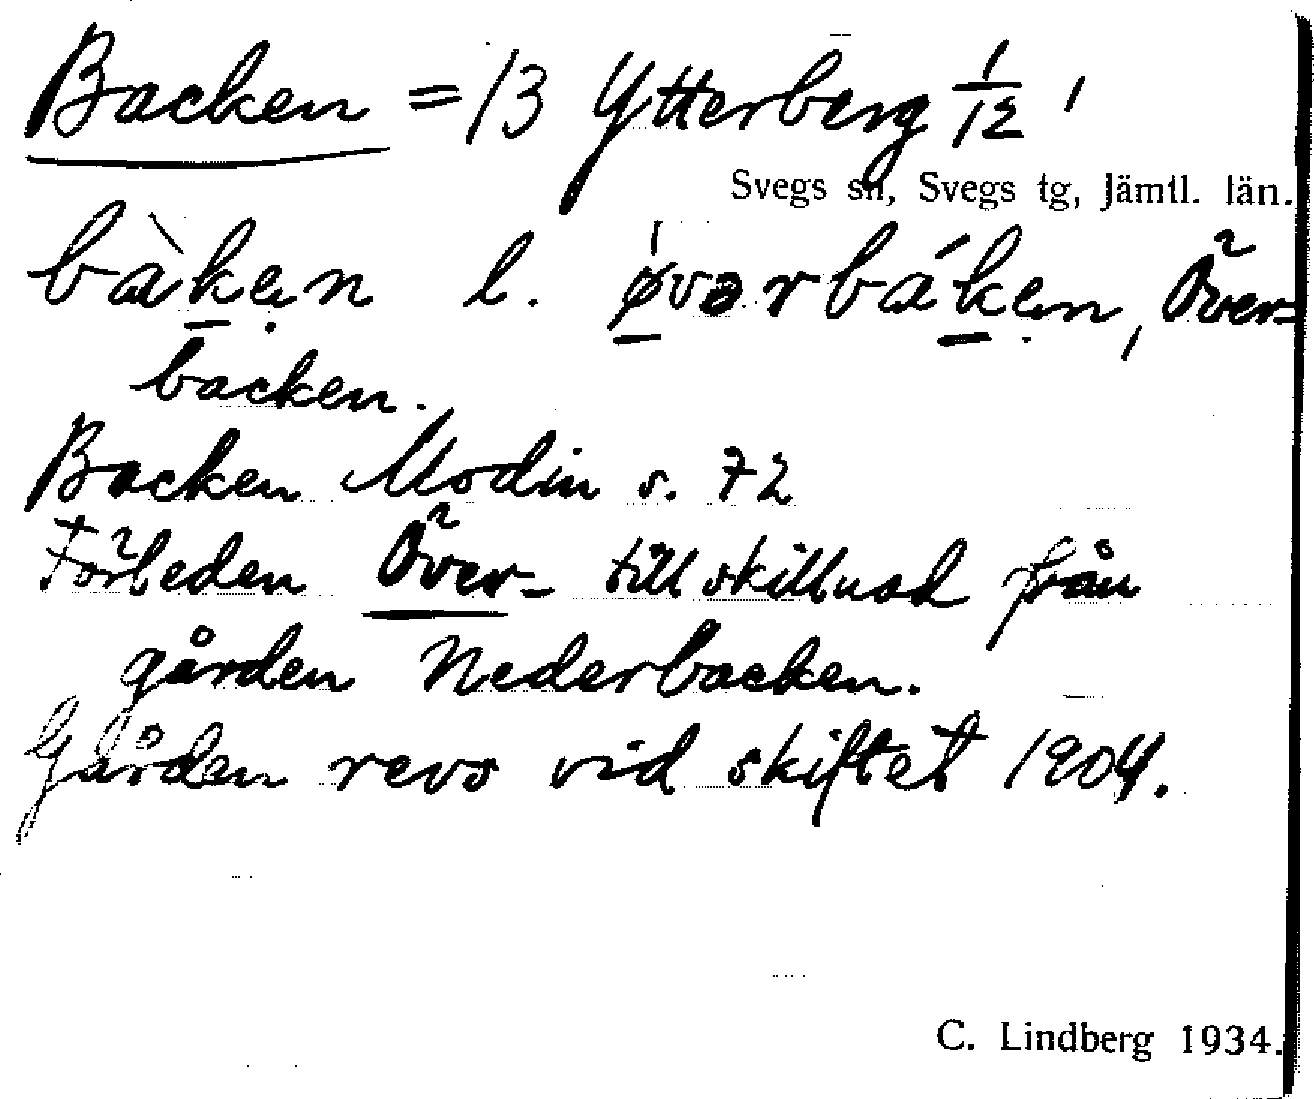 Backen = 13 Ytterberg 1/12 1
Svegs sn, Svegs tg, Jämtl. län.
bàk̲ẹn l. ø̲vərbák̲ẹn, Över-
backen.
Backen Modin s. 72
Förleden Över- till skillnad från
gården Nederbacken.
Gården revs vid skiftet 1904.
C. Lindberg 1934.